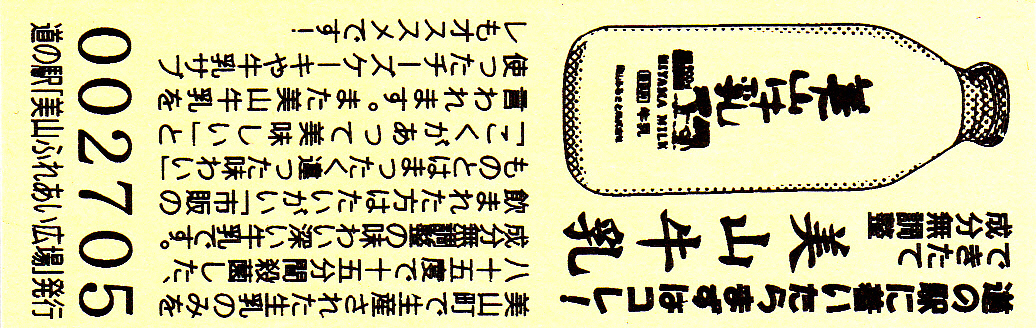 道の駅に着いたらまずはコレ!
できたて
成分無調整
美山牛乳
美山牛乳
MIYAMA MILK
牛乳
美山町で生産された生乳のみを
八十五度で十五分間殺菌した、
成分無調整の味わい深い牛乳です。
飲まれた方はたいがい「市販の
ものとはまったく違った味わい」
「こくがあって美味しい」と
言われます。また美山牛乳を
使ったチーズケーキや牛乳サブ
レもオススメです!
002705
道の駅「美山ふれあい広場」発行